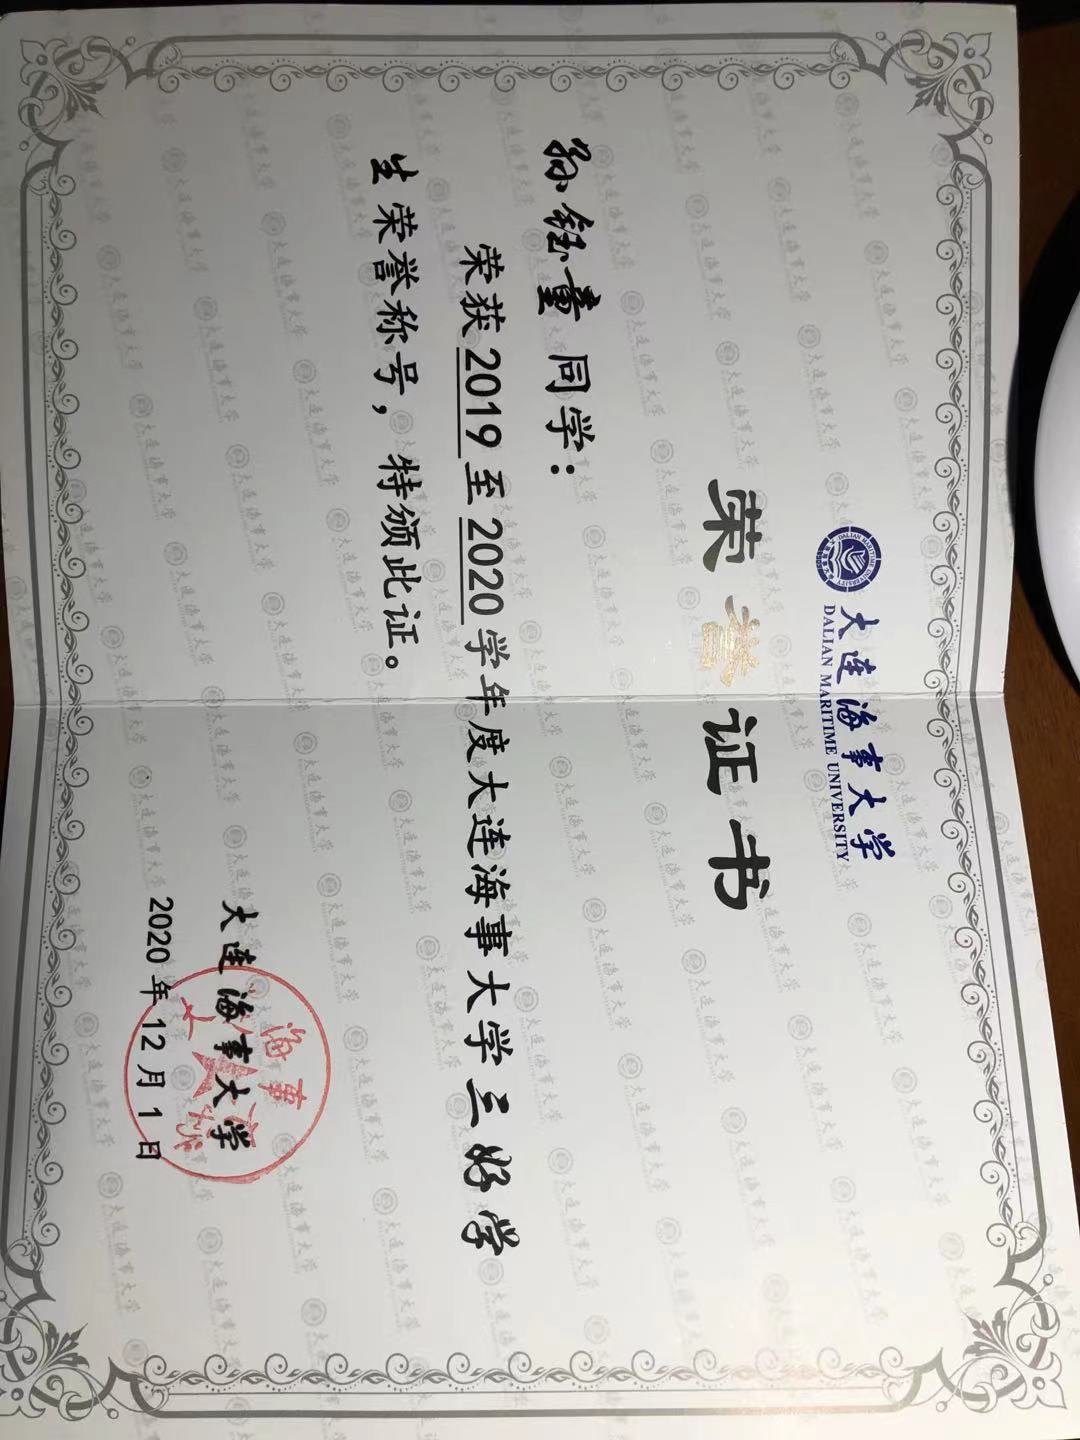 大连海事大学
DALIAN MARITIME UNIVERSITY
荣誉证书
孙钰童 同学：
荣获 2019 至 2020 学年度大连海事大学三好学
生荣誉称号，特颁此证。
大连海事大学
2020 年 12 月 1 日